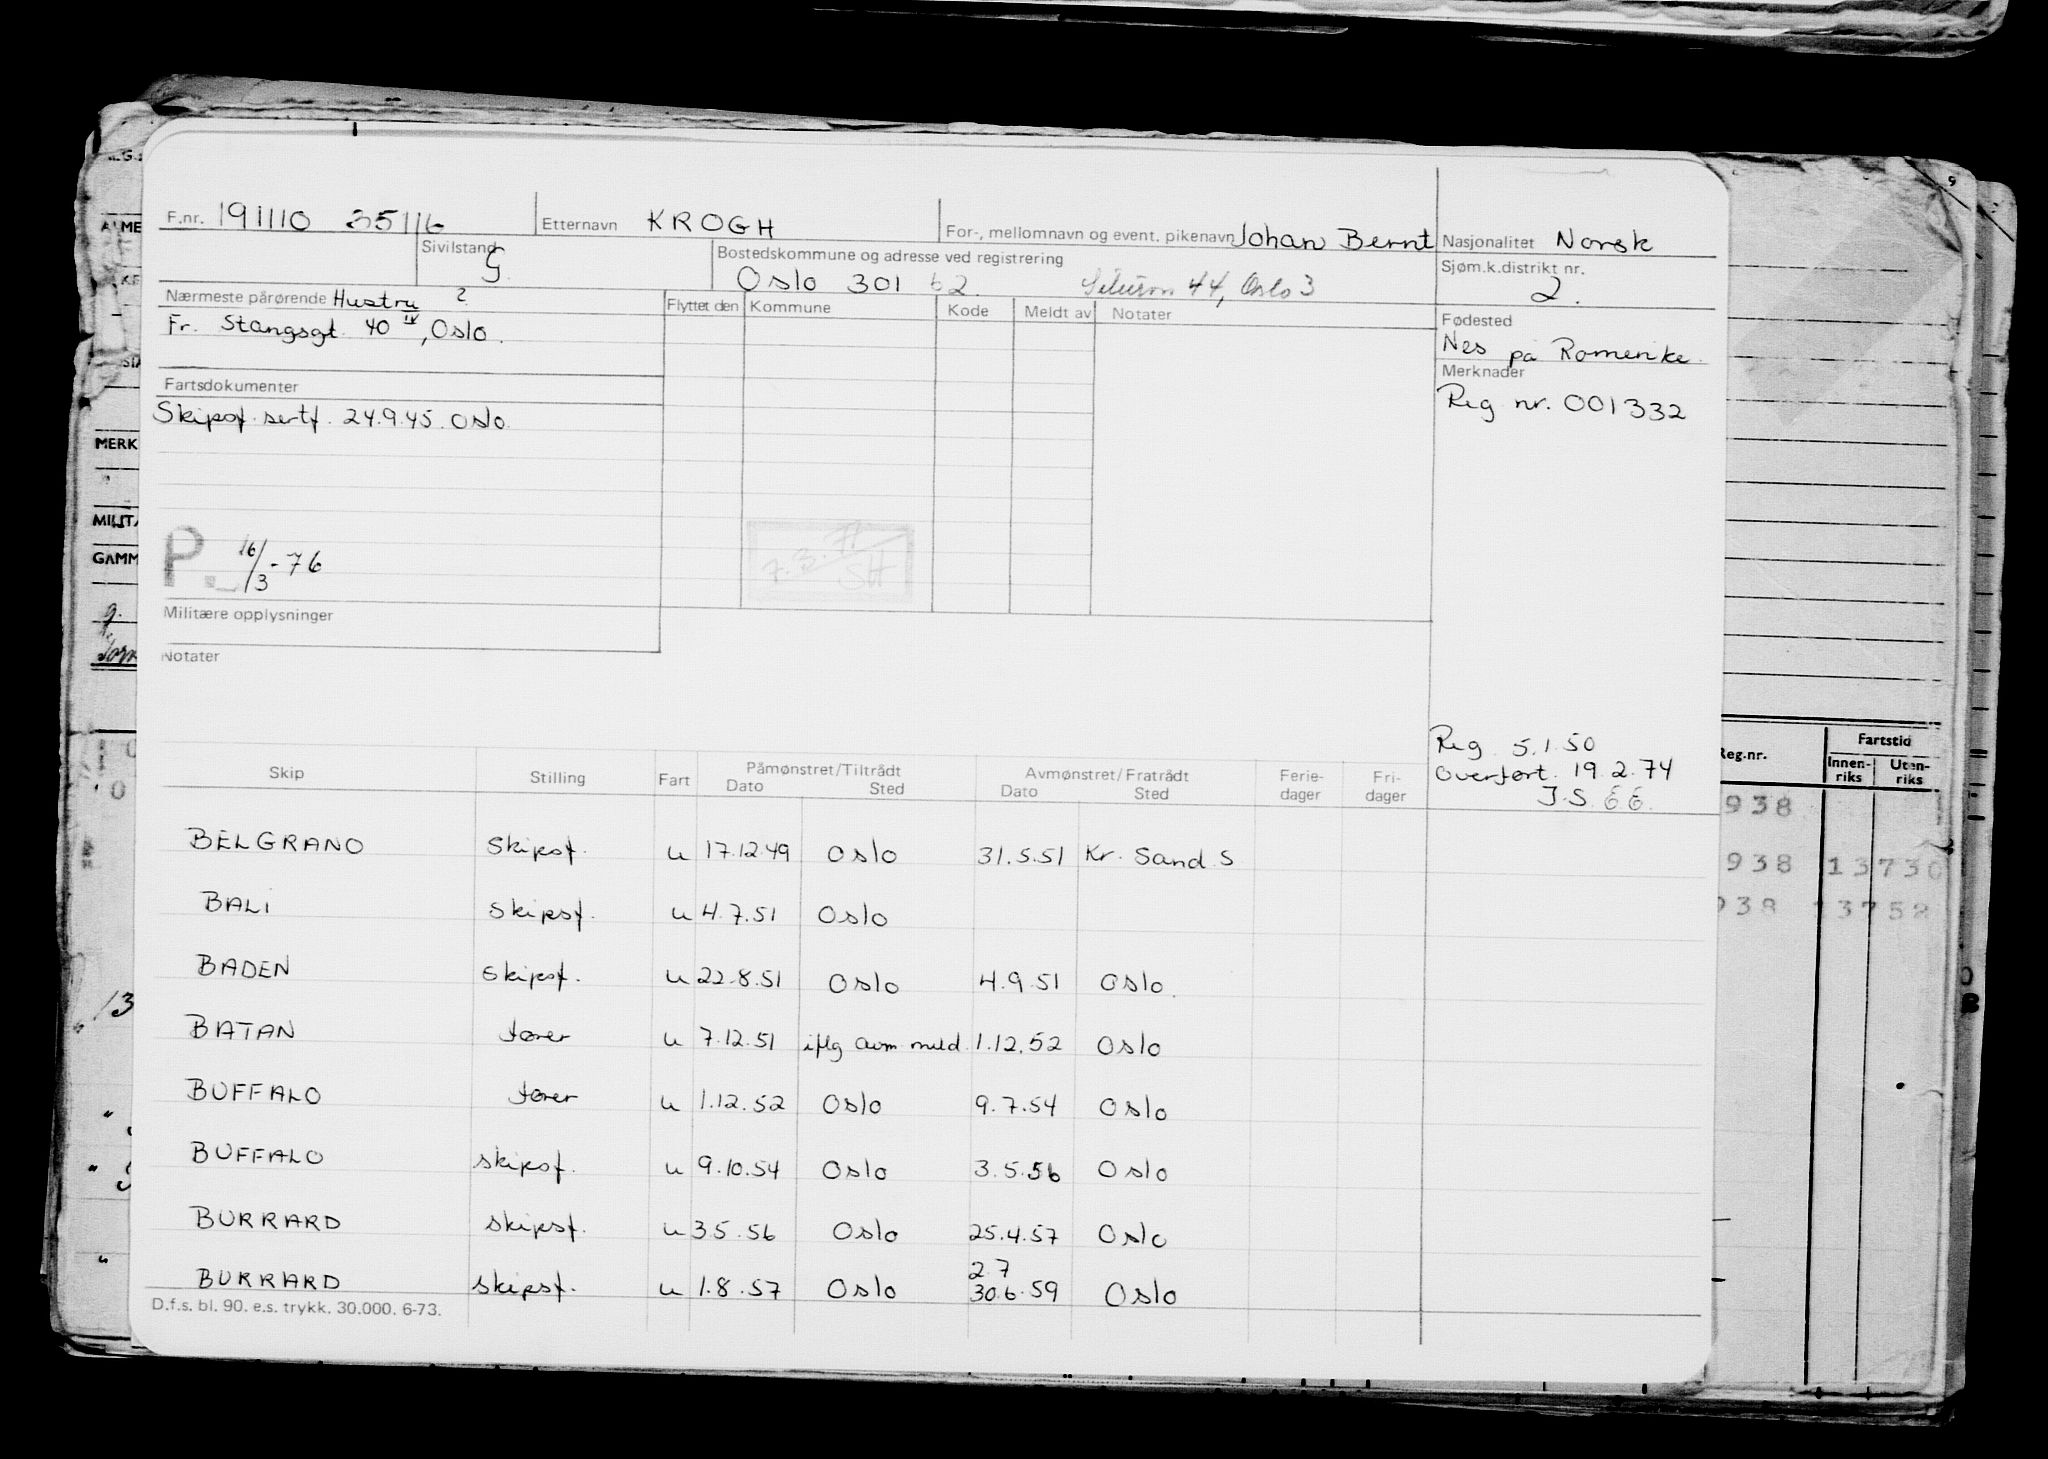 F.nr. 191110 35116 Etternavn KROGH For-, mellomnavn og event. pikenavn Johan Bernt Nasjonalitet Norsk
Sivilstand G. Bostedskommune og adresse ved registrering Sjøm.k.distrikt nr.
Oslo 301 62 44, Oslo 3 2.
Nærmeste pårørende Hustru ? Flyttet den Kommune Kode Meldt av Notater Fødested
Fr. Stangsgt. 40 IV, Oslo. Nes på Romerike.
Fartsdokumenter Merknader
Skipsf. sertf. 24.9.45. Oslo. Reg. nr. 001332
P. 16/3-76 7.3.77 SH
Militære opplysninger
Notater
Reg. 5.1.50
Overført. 19.2.74
J.S. E E.
Skip Stilling Fart Påmønstret/Tiltrådt Avmønstret/Fratrådt Ferie- Fri-
Dato Sted Dato Sted dager dager
BELGRANO Skipsf. u 17.12.49 Oslo 31.5.51 Kr. Sand. S
BALI Skipsf. u 4.7.51 Oslo
BADEN Skipsf. u 22.8.51 Oslo 4.9.51 Oslo.
BATAN fører u 7.12.51 iflg avm meld. 1.12.52 Oslo
BUFFALO fører u 1.12.52 Oslo 9.7.54 Oslo
BUFFALO skipsf. u 9.10.54 Oslo 3.5.56 Oslo
BURRARD skipsf. u 3.5.56 Oslo 25.4.57 Oslo
2.7
BURRARD skipsf. u 1.8.57 Oslo 30.6.59 Oslo
D.f.s. bl. 90. e.s. trykk. 30.000. 6-73.
MERK
MILITÆ
GAMM
9
Reg.nr. Fartstid
Innen-riks Uten-riks
938
938 13730
938 13752